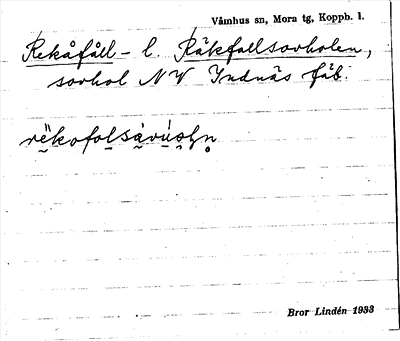 Våmhus sn, Mora tg, Koppb. l.
Rekåfåll- l. Räkfallsovholen,
sovhol NV Indnäs fäb.
Bror Lindén 1933